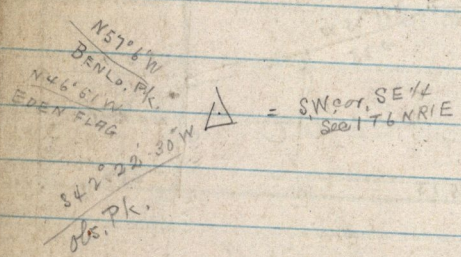 N57°6'W
BENLO. PK.
N46°61'W
EDEN FLAG
S42°22'30"W
Obs. Pk.
= S.W cor, SE 1/4
Sec 1 T 6 N R 1 E